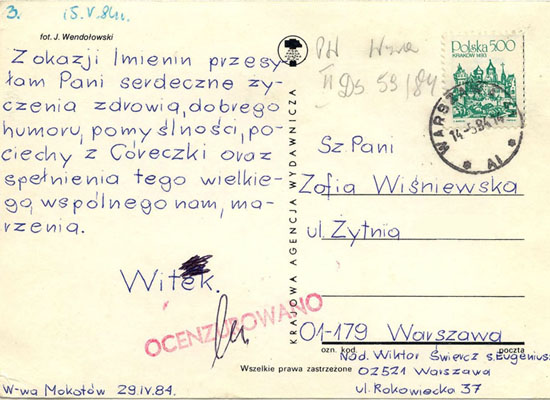 3. 15.V.84r.
fot. J. Wendołowski
Z okazji Imienin przesy-
łam Pani serdeczne ży-
czenia zdrowia, dobrego
humoru, pomyślności, po-
ciechy z Córeczki oraz
spełnienia tego wielkie-
go, wspólnego nam, ma-
rzenia.
Witek.
OCENZUROWANO
W-wa Mokotów 29.IV.84.
KRAJOWA AGENCJA WYDAWNICZA
II Ds 59/84
Polska 5,00
KRAKÓW 1493
WARSZAWA
14-5.84
A1
Sz. Pani
Zofia Wiśniewska
ul. Żytnia
01-179 Warszawa
ozn. kod. poczta
Wszelkie prawa zastrzeżone
Nad. Wiktor Świercz s. Eugeniusz
02521 Warszawa
ul. Rakowiecka 37